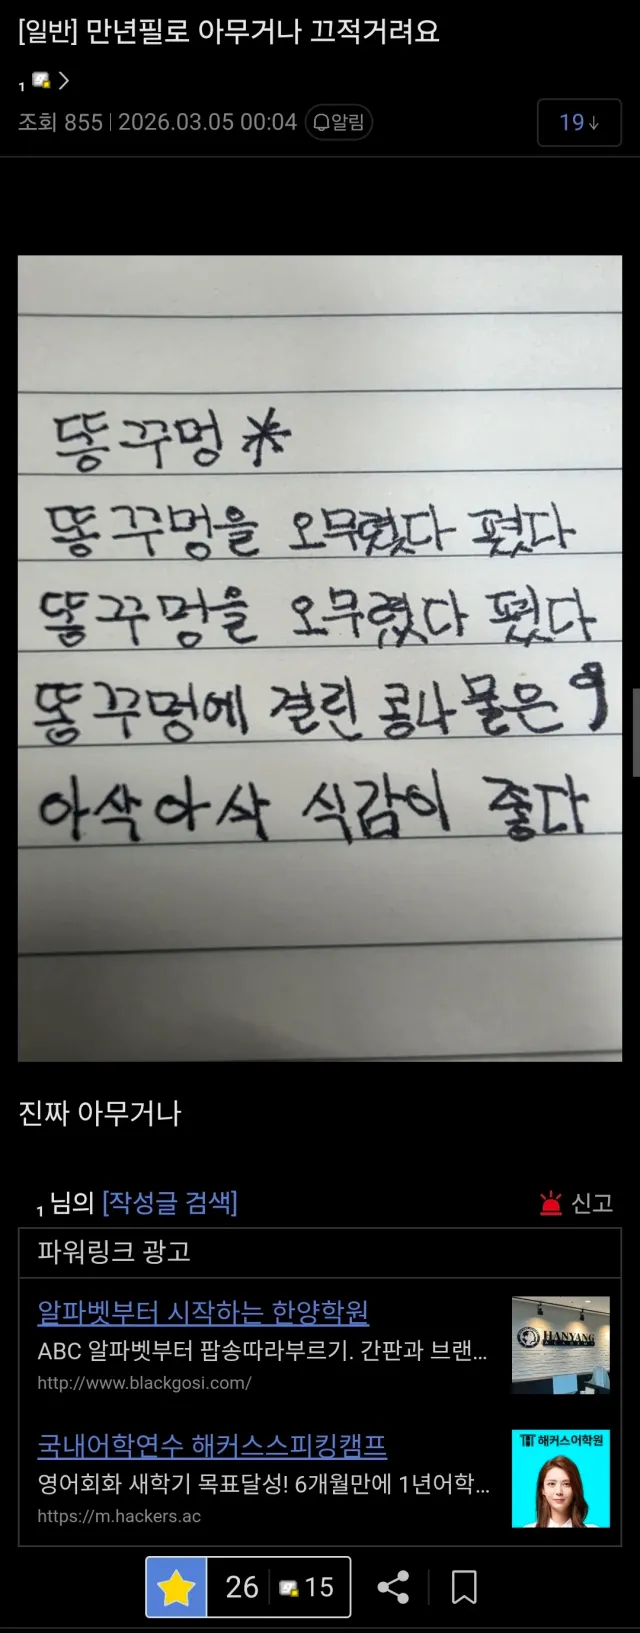 [일반] 만년필로 아무거나 끄적거려요
1 >
조회 855 | 2026.03.05 00:04 알림 19↓
똥꾸멍 *
똥꾸멍을 오무렸다 폈다
똥꾸멍을 오무렸다 폈다
똥꾸멍에 걸린 콩나물은 9
아삭아삭 식감이 좋다
진짜 아무거나
1 님의 [작성글 검색] 신고
파워링크 광고
알파벳부터 시작하는 한양학원
ABC 알파벳부터 팝송따라부르기. 간판과 브랜...
http://www.blackgosi.com/
HANYANG
ACADEMY
국내어학연수 해커스스피킹캠프
영어회화 새학기 목표달성! 6개월만에 1년어학...
https://m.hackers.ac
해커스어학원
26 15